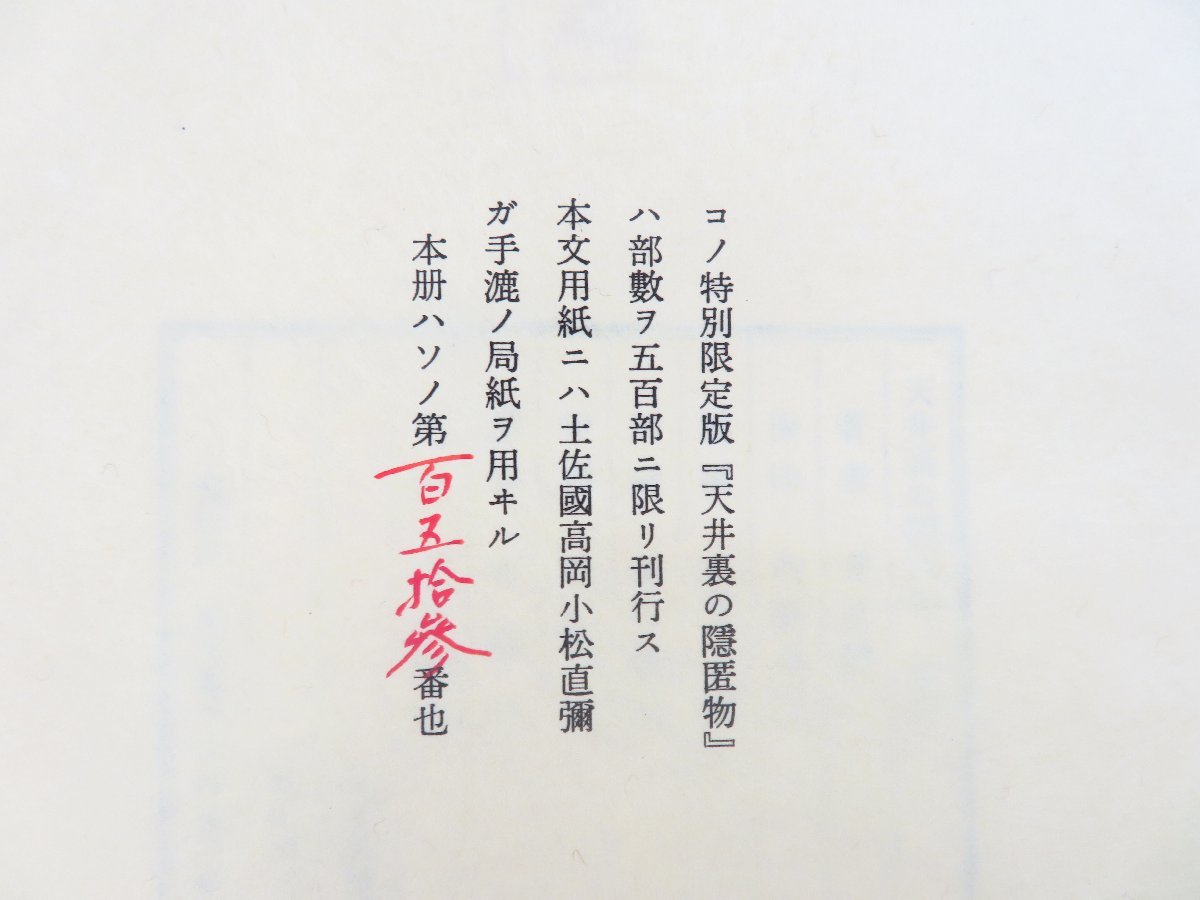 コノ特別限定版『天井裏の隱匿物』
ハ部數ヲ五百部ニ限リ刊行ス
本文用紙ニハ土佐國高岡小松直彌
ガ手漉ノ局紙ヲ用ヰル
本册ハソノ第百五拾參番也